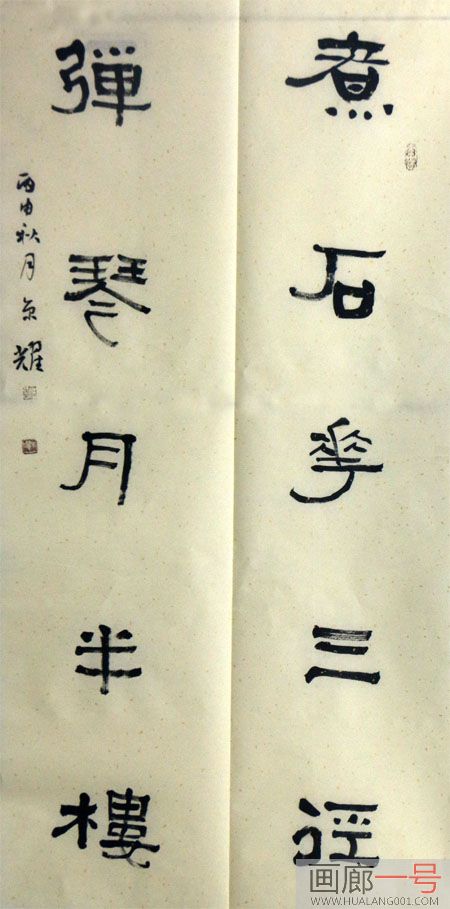 煮石華三徑
彈琴月半樓
丙申秋月京耀
画廊一号
WWW.HUALANG001.COM